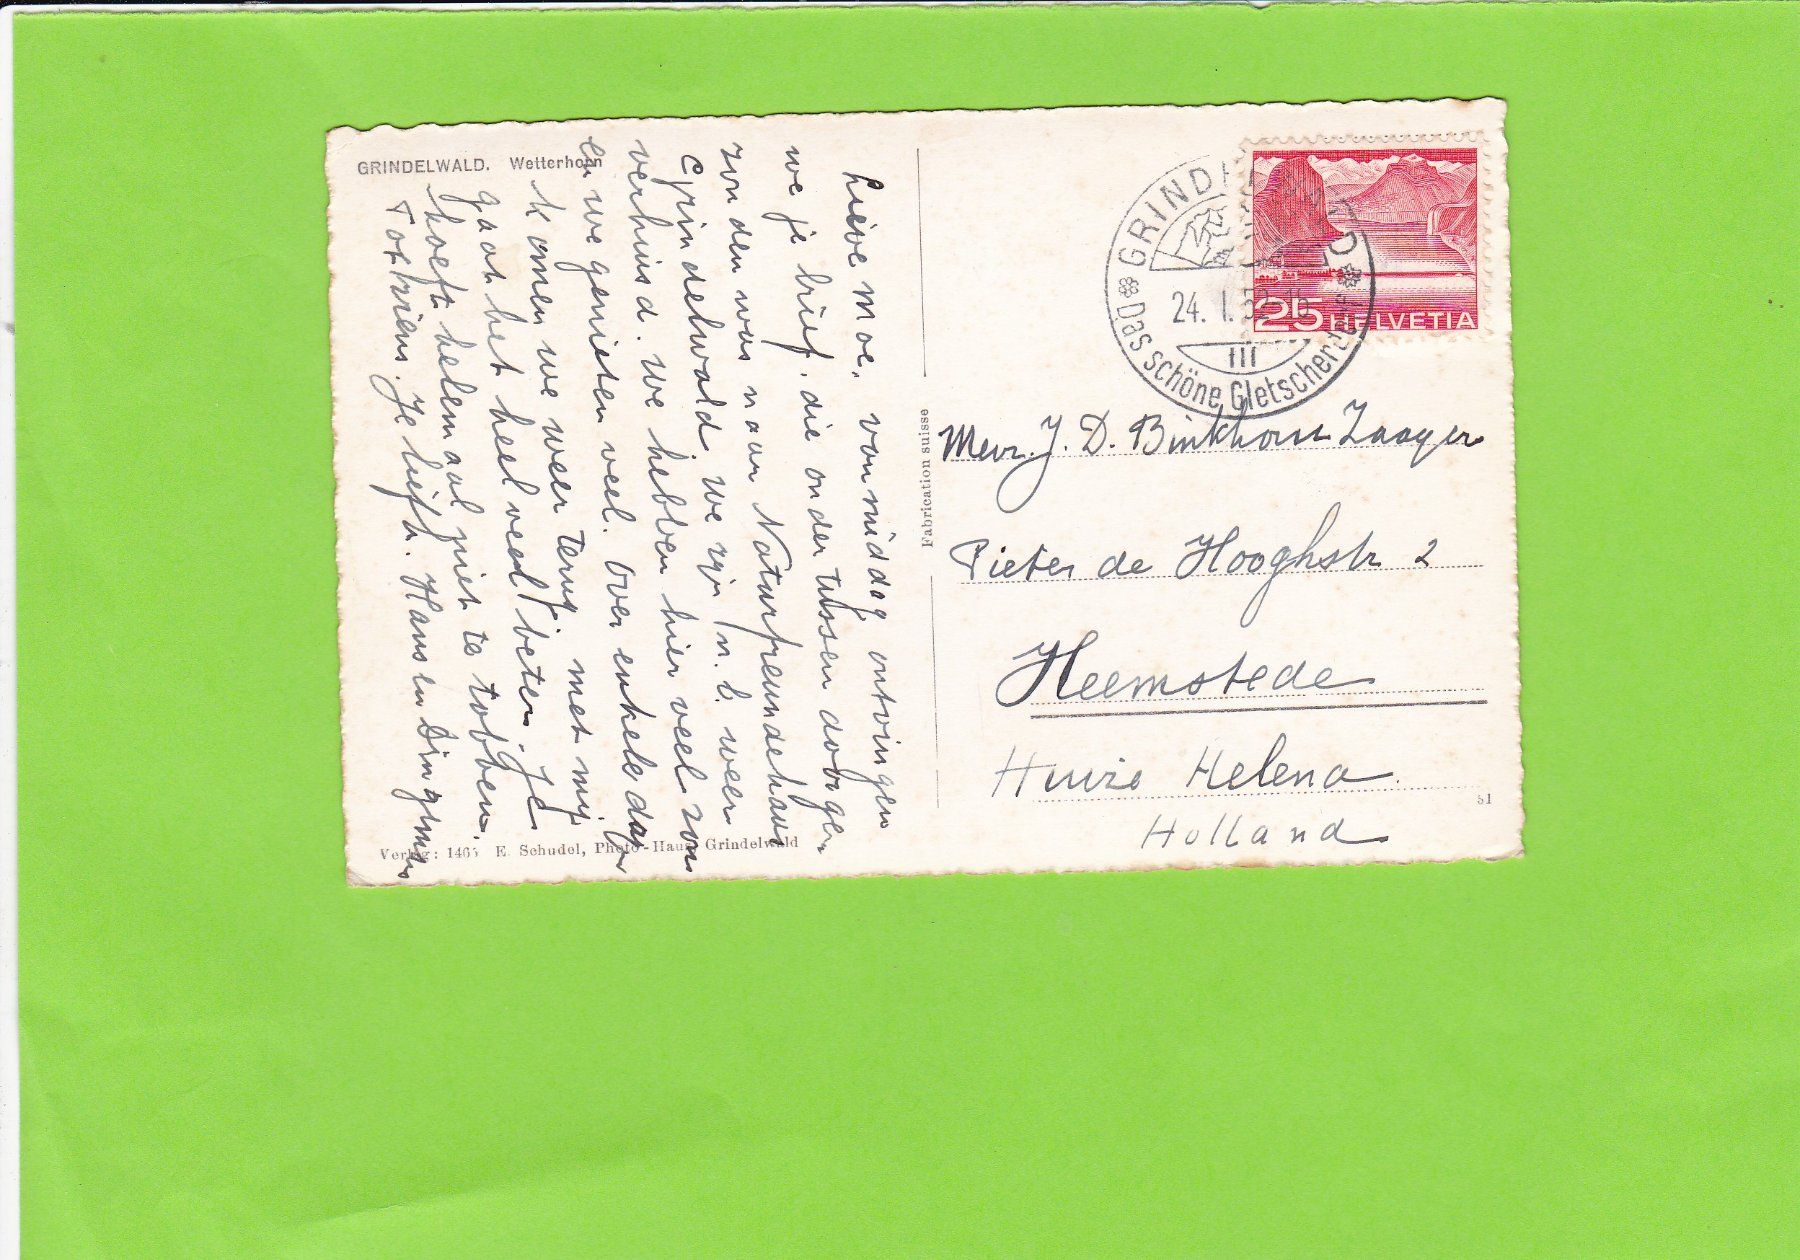 GRINDELWALD. Wetterhorn
Lieve Moe, vanmiddag ontvingen
we je brief, die ondertussen
zonden was naar Naturfreundehaus
Grindelwald. We zijn n.b. weer
verhuisd. We hebben hier veel zon
en we genieten veel. Over enkele dagen
komen we weer terug. Met mij
gaat het heel veel beter. Je
hoeft helemaal niet te tobben.
Tot ziens. Je liefh. Hans en
Verlag: 1465 E. Schudel, Photo-Haus, Grindelwald
Fabrication suisse
GRINDELWALD
24. I. 52 16
III
Das schöne Gletscherdorf
25 HELVETIA
Mevr. J. D. Binkhorst Zaayer
Pieter de Hooghstr 2
Heemstede
Huize Helena
Holland
51